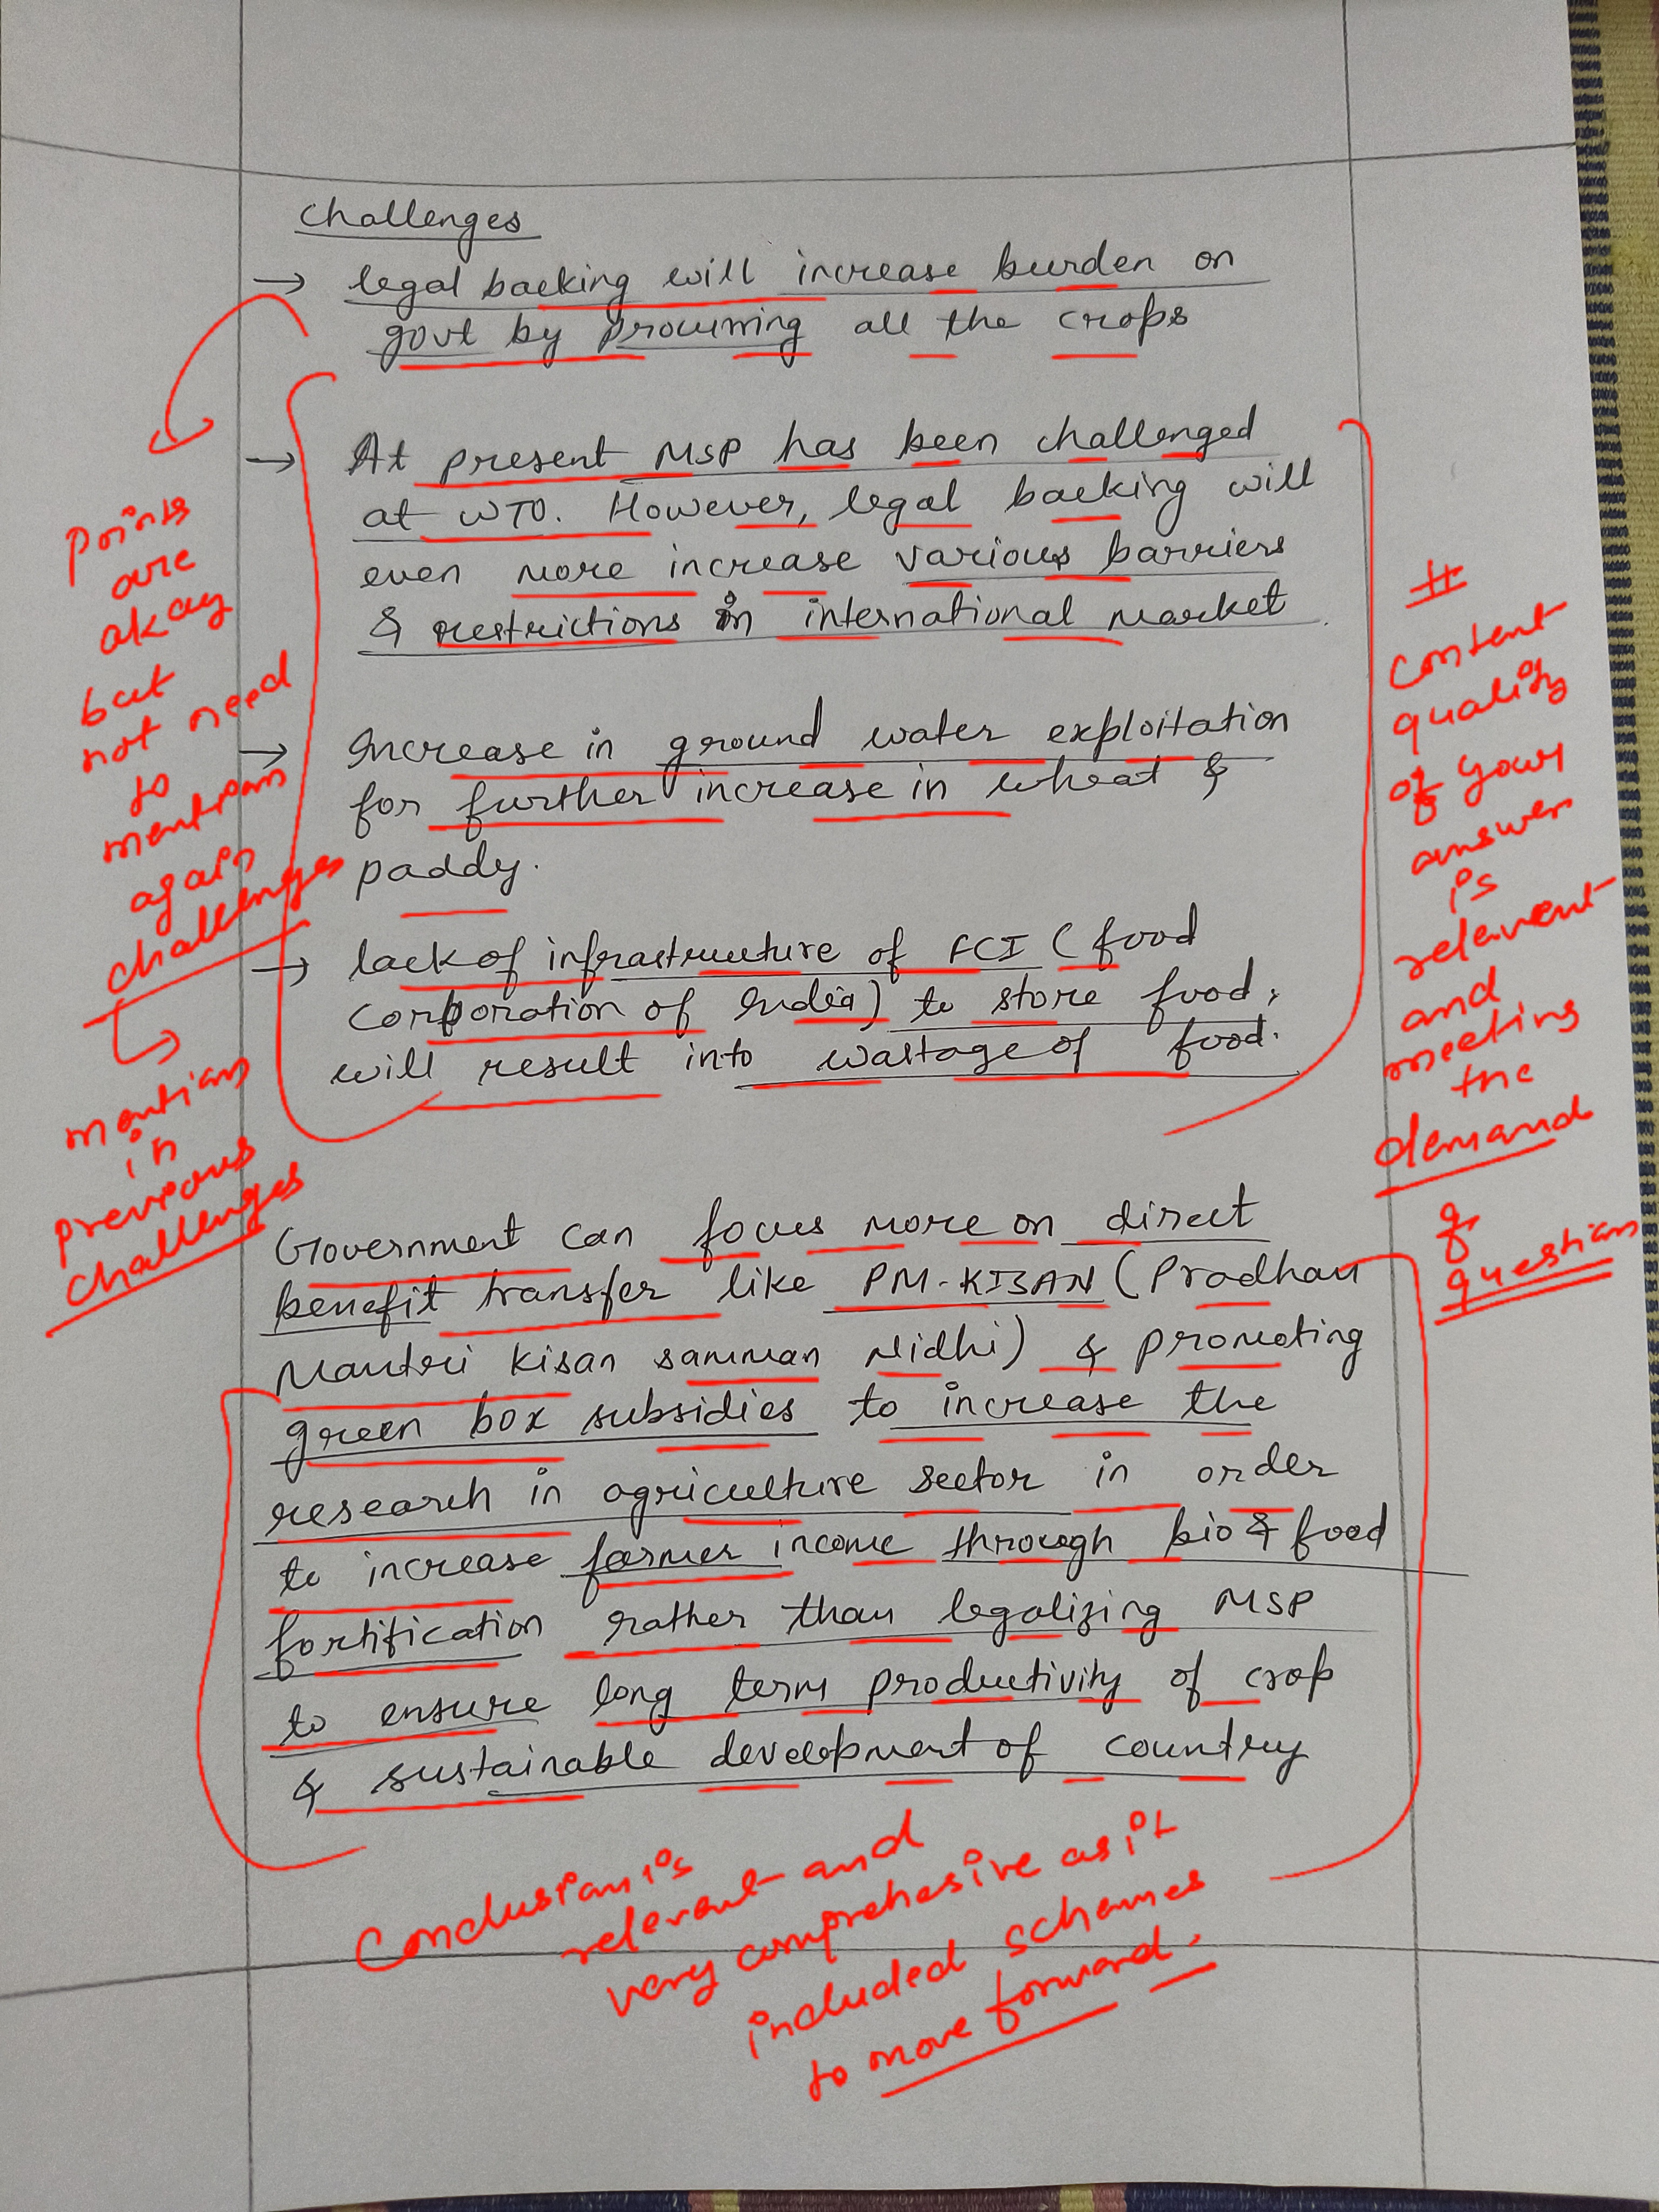 Challenges
→ legal backing will increase burden on
govt by procurring all the crops
→ At present MSP has been challenged
at WTO. However, legal backing will
even more increase various barriers
& restrictions in international market.
→ Increase in ground water exploitation
for further increase in wheat &
paddy.
→ lack of infrastructure of FCI (food
Corporation of India) to store food,
will result into wastage of food.
Government can focus more on direct
benefit transfer like PM-KISAN (Pradhan
Mantri Kisan samman Nidhi) & promoting
green box subsidies to increase the
research in agriculture sector in order
to increase farmer income through bio & food
fortification rather than legalizing MSP
to ensure long term productivity of crop
& sustainable development of country
Points
are
okay
but
not need
to
mention
again
challenges
mention
in
previous
challenges
#
Content
quality
of your
answer
is
relevent
and
meeting
the
demand
of
question
Conclusion is
relevent and
very comprehesive as it
included schemes
to move forward.